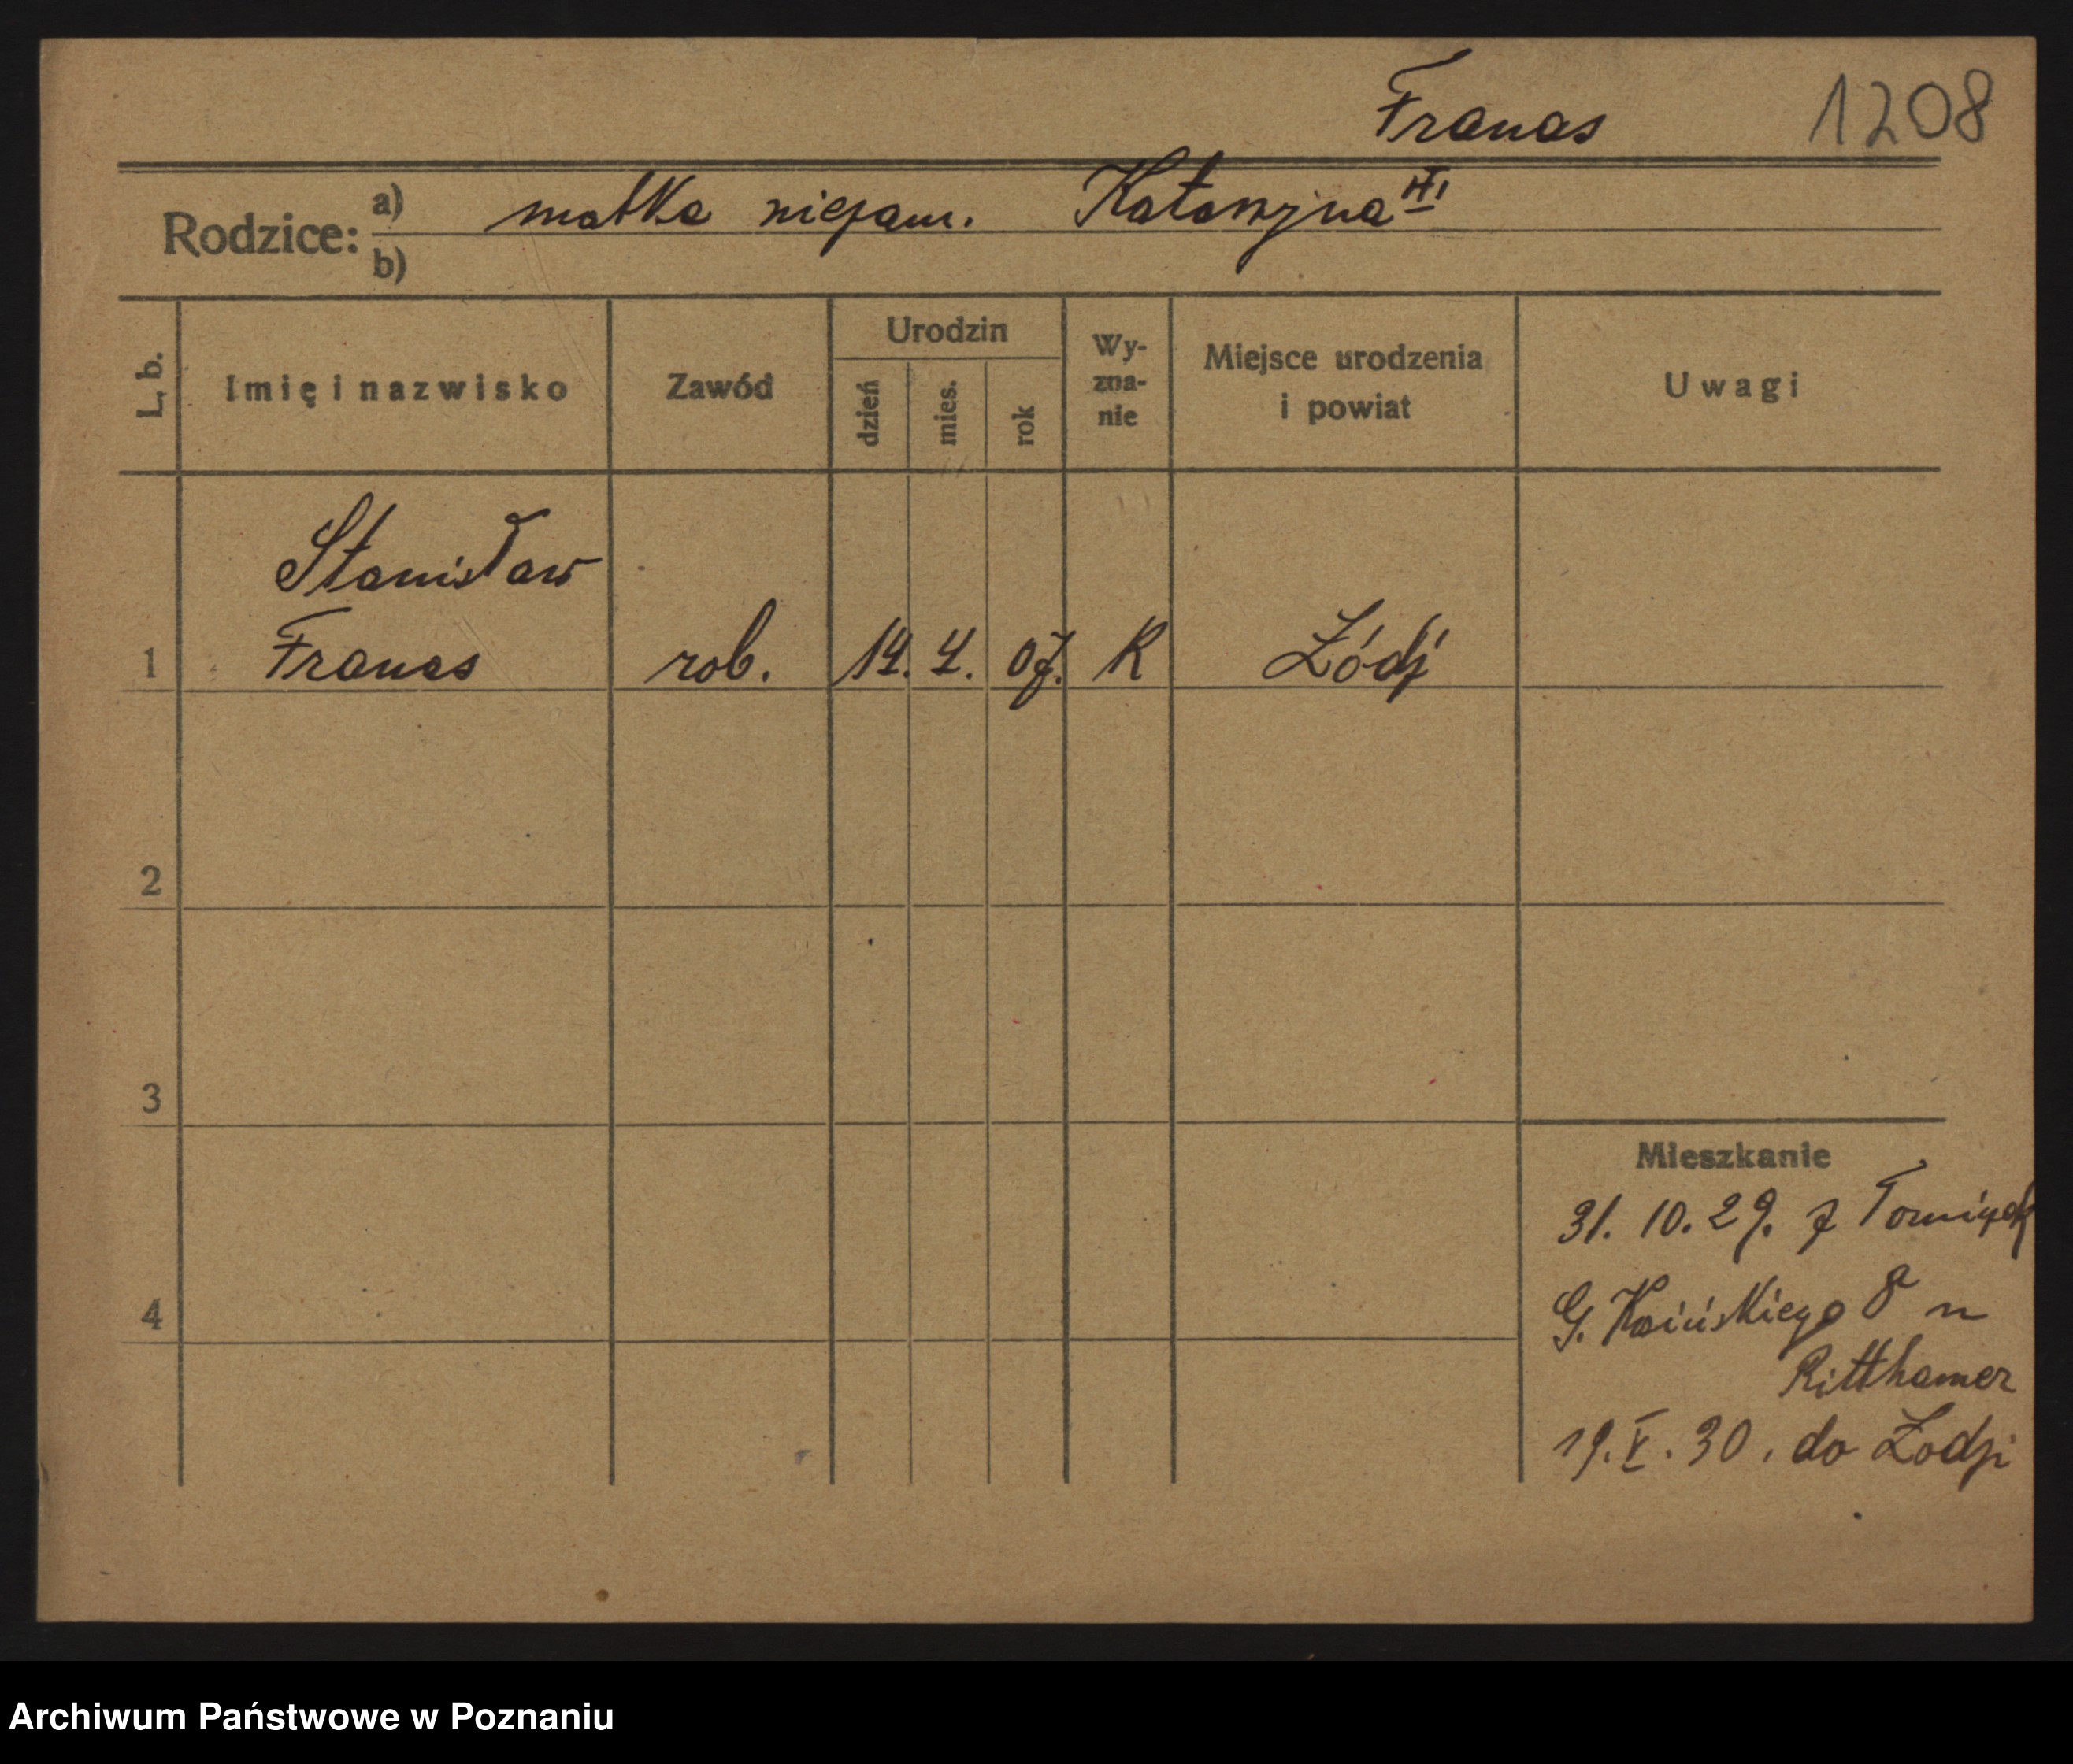 Franas 1208
Rodzice: a) matka niezam. Katarzyna
b)
L. b.
Imię i nazwisko
Zawód
Urodzin
dzień
mies.
rok
Wy-
zna-
nie
Miejsce urodzenia
i powiat
Uwagi
Stanisław
1 Franas rob. 14. 4. 07. K Łódź
2
3
4
Mieszkanie
31. 10. 29. z
G. 8 u
Ritthamer
19. V. 30. do Łodzi
Archiwum Państwowe w Poznaniu